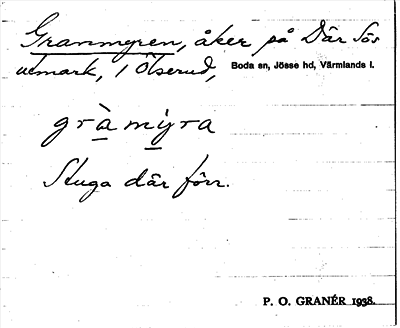 Granmyren, åker på Där Sös
utmark, i Ölserud,
Boda sn, Jösse hd, Värmlands l.
gràmýra
Stuga där förr.
P. O. GRANÉR 1938.